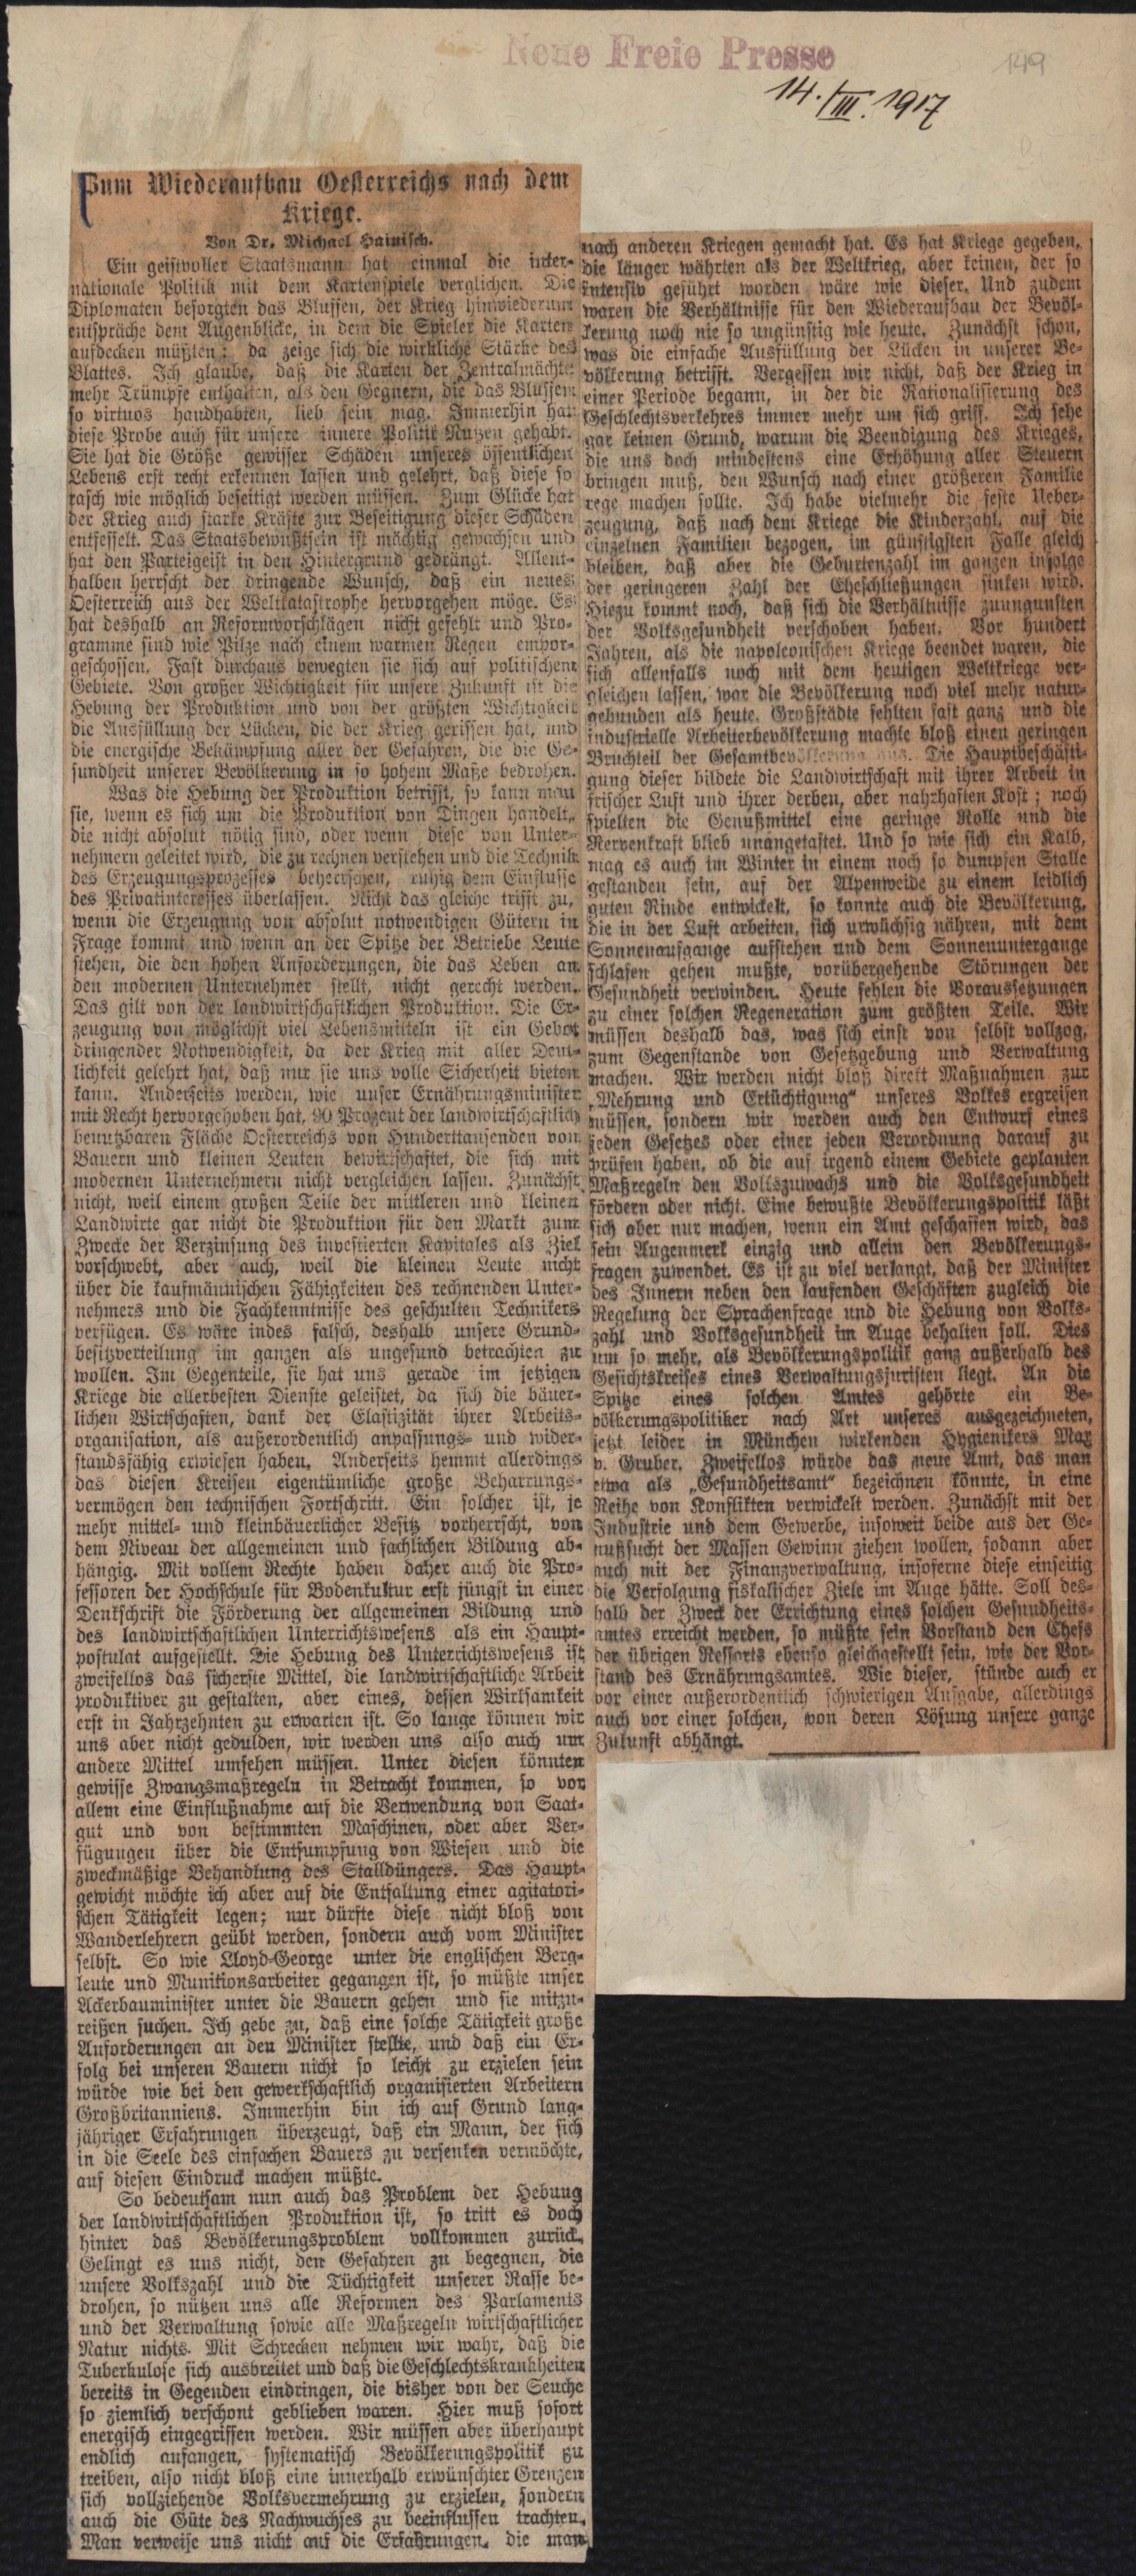 Neue Freie Presse
149
14./III. 1917
Zum Wiederaufbau Oesterreichs nach dem
Kriege.
Von Dr. Michael Hainisch.
Ein geistvoller Staatsmann hat einmal die inter-
nationale Politik mit dem Kartenspiele verglichen. Die
Diplomaten besorgten das Bluffen, der Krieg hinwiederum
entspräche dem Augenblicke, in dem die Spieler die Karten
aufdecken müßten; da zeige sich die wirkliche Stärke des
Blattes. Ich glaube, daß die Karten der Zentralmächte
mehr Trümpfe enthalten, als den Gegnern, die das Bluffen
so virtuos handhabten, lieb sein mag. Immerhin hat
diese Probe auch für unsere innere Politik Nutzen gehabt.
Sie hat die Größe gewisser Schäden unseres öffentlichen
Lebens erst recht erkennen lassen und gelehrt, daß diese so
rasch wie möglich beseitigt werden müssen. Zum Glücke hat
der Krieg auch starke Kräfte zur Beseitigung dieser Schäden
entfesselt. Das Staatsbewußtsein ist mächtig gewachsen und
hat den Parteigeist in den Hintergrund gedrängt. Allent-
halben herrscht der dringende Wunsch, daß ein neues
Oesterreich aus der Weltkatastrophe hervorgehen möge. Es
hat deshalb an Reformvorschlägen nicht gefehlt und Pro-
gramme sind wie Pilze nach einem warmen Regen empor-
geschossen. Fast durchaus bewegten sie sich auf politischem
Gebiete. Von großer Wichtigkeit für unsere Zukunft ist die
Hebung der Produktion und von der größten Wichtigkeit
die Ausfüllung der Lücken, die der Krieg gerissen hat, und
die energische Bekämpfung aller der Gefahren, die die Ge-
sundheit unserer Bevölkerung in so hohem Maße bedrohen.
Was die Hebung der Produktion betrifft, so kann man
sie, wenn es sich um die Produktion von Dingen handelt,
die nicht absolut nötig sind, oder wenn diese von Unter-
nehmern geleitet wird, die zu rechnen verstehen und die Technik
des Erzeugungsprozesses beherrschen, ruhig dem Einflusse
des Privatinteresses überlassen. Nicht das gleiche trifft zu,
wenn die Erzeugung von absolut notwendigen Gütern in
Frage kommt und wenn an der Spitze der Betriebe Leute
stehen, die den hohen Anforderungen, die das Leben an
den modernen Unternehmer stellt, nicht gerecht werden.
Das gilt von der landwirtschaftlichen Produktion. Die Er-
zeugung von möglichst viel Lebensmitteln ist ein Gebot
dringender Notwendigkeit, da der Krieg mit aller Deut-
lichkeit gelehrt hat, daß nur sie uns volle Sicherheit bieten
kann. Anderseits werden, wie unser Ernährungsminister
mit Recht hervorgehoben hat, 90 Prozent der landwirtschaftlich
benutzbaren Fläche Oesterreichs von Hunderttausenden von
Bauern und kleinen Leuten bewirtschaftet, die sich mit
modernen Unternehmern nicht vergleichen lassen. Zunächst
nicht, weil einem großen Teile der mittleren und kleinen
Landwirte gar nicht die Produktion für den Markt zum
Zwecke der Verzinsung des investierten Kapitales als Ziel
vorschwebt, aber auch, weil die kleinen Leute nicht
über die kaufmännischen Fähigkeiten des rechnenden Unter-
nehmers und die Fachkenntnisse des geschulten Technikers
verfügen. Es wäre indes falsch, deshalb unsere Grund-
besitzverteilung im ganzen als ungesund betrachten zu
wollen. Im Gegenteile, sie hat uns gerade im jetzigen
Kriege die allerbesten Dienste geleistet, da sich die bäuer-
lichen Wirtschaften, dank der Elastizität ihrer Arbeits-
organisation, als außerordentlich anpassungs- und wider-
standsfähig erwiesen haben. Anderseits hemmt allerdings
das diesen Kreisen eigentümliche große Beharrungs-
vermögen den technischen Fortschritt. Ein solcher ist, je
mehr mittel- und kleinbäuerlicher Besitz vorherrscht, von
dem Niveau der allgemeinen und fachlichen Bildung ab-
hängig. Mit vollem Rechte haben daher auch die Pro-
fessoren der Hochschule für Bodenkultur erst jüngst in einer
Denkschrift die Förderung der allgemeinen Bildung und
des landwirtschaftlichen Unterrichtswesens als ein Haupt-
postulat aufgestellt. Die Hebung des Unterrichtswesens ist
zweifellos das sicherste Mittel, die landwirtschaftliche Arbeit
produktiver zu gestalten, aber eines, dessen Wirksamkeit
erst in Jahrzehnten zu erwarten ist. So lange können wir
uns aber nicht gedulden, wir werden uns also auch um
andere Mittel umsehen müssen. Unter diesen könnten
gewisse Zwangsmaßregeln in Betracht kommen, so vor
allem eine Einflußnahme auf die Verwendung von Saat-
gut und von bestimmten Maschinen, oder aber Ver-
fügungen über die Entsumpfung von Wiesen und die
zweckmäßige Behandlung des Stalldüngers. Das Haupt-
gewicht möchte ich aber auf die Entfaltung einer agitatori-
schen Tätigkeit legen; nur dürfte diese nicht bloß von
Wanderlehrern geübt werden, sondern auch vom Minister
selbst. So wie Lloyd-George unter die englischen Berg-
leute und Munitionsarbeiter gegangen ist, so müßte unser
Ackerbauminister unter die Bauern gehen und sie mitzu-
reißen suchen. Ich gebe zu, daß eine solche Tätigkeit große
Anforderungen an den Minister stellte, und daß ein Er-
folg bei unseren Bauern nicht so leicht zu erzielen sein
würde wie bei den gewerkschaftlich organisierten Arbeitern
Großbritanniens. Immerhin bin ich auf Grund lang-
jähriger Erfahrungen überzeugt, daß ein Mann, der sich
in die Seele des einfachen Bauers zu versenken vermöchte,
auf diesen Eindruck machen müßte.
So bedeutsam nun auch das Problem der Hebung
der landwirtschaftlichen Produktion ist, so tritt es doch
hinter das Bevölkerungsproblem vollkommen zurück.
Gelingt es uns nicht, den Gefahren zu begegnen, die
unsere Volkszahl und die Tüchtigkeit unserer Rasse be-
drohen, so nützen uns alle Reformen des Parlaments
und der Verwaltung sowie alle Maßregeln wirtschaftlicher
Natur nichts. Mit Schrecken nehmen wir wahr, daß die
Tuberkulose sich ausbreitet und daß die Geschlechtskrankheiten
bereits in Gegenden eindringen, die bisher von der Seuche
so ziemlich verschont geblieben waren. Hier muß sofort
energisch eingegriffen werden. Wir müssen aber überhaupt
endlich anfangen, systematisch Bevölkerungspolitik zu
treiben, also nicht bloß eine innerhalb erwünschter Grenzen
sich vollziehende Volksvermehrung zu erzielen, sondern
auch die Güte des Nachwuchses zu beeinflussen trachten.
Man verweise uns nicht auf die Erfahrungen, die man
nach anderen Kriegen gemacht hat. Es hat Kriege gegeben,
die länger währten als der Weltkrieg, aber keinen, der so
intensiv geführt worden wäre wie dieser. Und zudem
waren die Verhältnisse für den Wiederaufbau der Bevöl-
kerung noch nie so ungünstig wie heute. Zunächst schon,
was die einfache Ausfüllung der Lücken in unserer Be-
völkerung betrifft. Vergessen wir nicht, daß der Krieg in
einer Periode begann, in der die Rationalisierung des
Geschlechtsverkehres immer mehr um sich griff. Ich sehe
gar keinen Grund, warum die Beendigung des Krieges,
die uns doch mindestens eine Erhöhung aller Steuern
bringen muß, den Wunsch nach einer größeren Familie
rege machen sollte. Ich habe vielmehr die feste Ueber-
zeugung, daß nach dem Kriege die Kinderzahl, auf die
einzelnen Familien bezogen, im günstigsten Falle gleich
bleiben, daß aber die Geburtenzahl im ganzen infolge
der geringeren Zahl der Eheschließungen sinken wird.
Hiezu kommt noch, daß sich die Verhältnisse zuungunsten
der Volksgesundheit verschoben haben. Vor hundert
Jahren, als die napoleonischen Kriege beendet waren, die
sich allenfalls noch mit dem heutigen Weltkriege ver-
gleichen lassen, war die Bevölkerung noch viel mehr natur-
gebunden als heute. Großstädte fehlten fast ganz und die
industrielle Arbeiterbevölkerung machte bloß einen geringen
Bruchteil der Gesamtbevölkerung aus. Die Hauptbeschäfti-
gung dieser bildete die Landwirtschaft mit ihrer Arbeit in
frischer Luft und ihrer derben, aber nahrhaften Kost; noch
spielten die Genußmittel eine geringe Rolle und die
Nervenkraft blieb unangetastet. Und so wie sich ein Kalb,
mag es auch im Winter in einem noch so dumpfen Stalle
gestanden sein, auf der Alpenweide zu einem leidlich
guten Rinde entwickelt, so konnte auch die Bevölkerung,
die in der Luft arbeiten, sich urwüchsig nähren, mit dem
Sonnenaufgange aufstehen und dem Sonnenuntergange
schlafen gehen mußte, vorübergehende Störungen der
Gesundheit verwinden. Heute fehlen die Voraussetzungen
zu einer solchen Regeneration zum größten Teile. Wir
müssen deshalb das, was sich einst von selbst vollzog,
zum Gegenstande von Gesetzgebung und Verwaltung
machen. Wir werden nicht bloß direkt Maßnahmen zur
„Mehrung und Ertüchtigung" unseres Volkes ergreifen
müssen, sondern wir werden auch den Entwurf eines
jeden Gesetzes oder einer jeden Verordnung darauf zu
prüfen haben, ob die auf irgend einem Gebiete geplanten
Maßregeln den Volkszuwachs und die Volksgesundheit
fördern oder nicht. Eine bewußte Bevölkerungspolitik läßt
sich aber nur machen, wenn ein Amt geschaffen wird, das
sein Augenmerk einzig und allein den Bevölkerungs-
fragen zuwendet. Es ist zu viel verlangt, daß der Minister
des Innern neben den laufenden Geschäften zugleich die
Regelung der Sprachenfrage und die Hebung von Volks-
zahl und Volksgesundheit im Auge behalten soll. Dies
um so mehr, als Bevölkerungspolitik ganz außerhalb des
Gesichtskreises eines Verwaltungsjuristen liegt. An die
Spitze eines solchen Amtes gehörte ein Be-
völkerungspolitiker nach Art unseres ausgezeichneten,
jetzt leider in München wirkenden Hygienikers Max
v. Gruber. Zweifellos würde das neue Amt, das man
etwa als „Gesundheitsamt" bezeichnen könnte, in eine
Reihe von Konflikten verwickelt werden. Zunächst mit der
Industrie und dem Gewerbe, insoweit beide aus der Ge-
nußsucht der Massen Gewinn ziehen wollen, sodann aber
auch mit der Finanzverwaltung, insoferne diese einseitig
die Verfolgung fiskalischer Ziele im Auge hätte. Soll des-
halb der Zweck der Errichtung eines solchen Gesundheits-
amtes erreicht werden, so müßte sein Vorstand den Chefs
der übrigen Ressorts ebenso gleichgestellt sein, wie der Vor-
stand des Ernährungsamtes. Wie dieser, stünde auch er
vor einer außerordentlich schwierigen Aufgabe, allerdings
auch vor einer solchen, von deren Lösung unsere ganze
Zukunft abhängt.